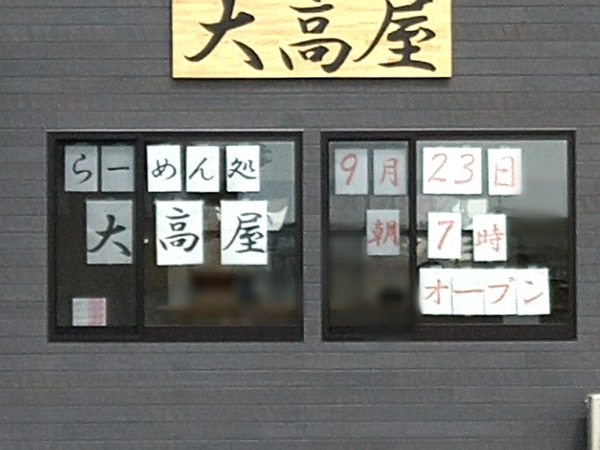 大高屋
らーめん処
大高屋
9月23日
朝7時
オープン